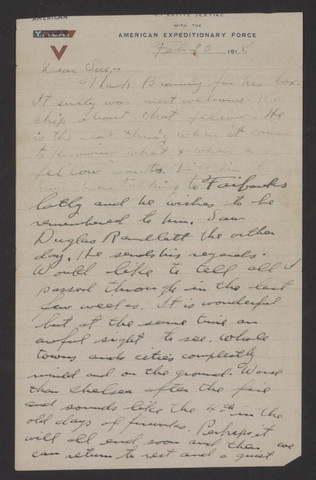 AMERICAN
YMCA
ACTIVE SERVICE
WITH THE
AMERICAN EXPEDITIONARY FORCE
Feb 23 1918
Dear
Thank for his box.
It surely was most welcome.
chip that fellow. He
is the real thing when it comes
to knowing what & when a
fellow wants.
talking to Fairbanks
lately and he wishes to be
remembered to him. Saw
Duglas Randlett the other
day. He sends his regards.
Would like to tell all I
passed through in the last
few weeks. It is wonderful
but at the same time an
awful sight to see. Whole
towns and cities completly
ruined and on the ground. Worse
than Chelsea after the fire
and sounds like the 4th in the
old days of fireworks. Perhaps it
will all end soon and then we
can return to rest and a quiet